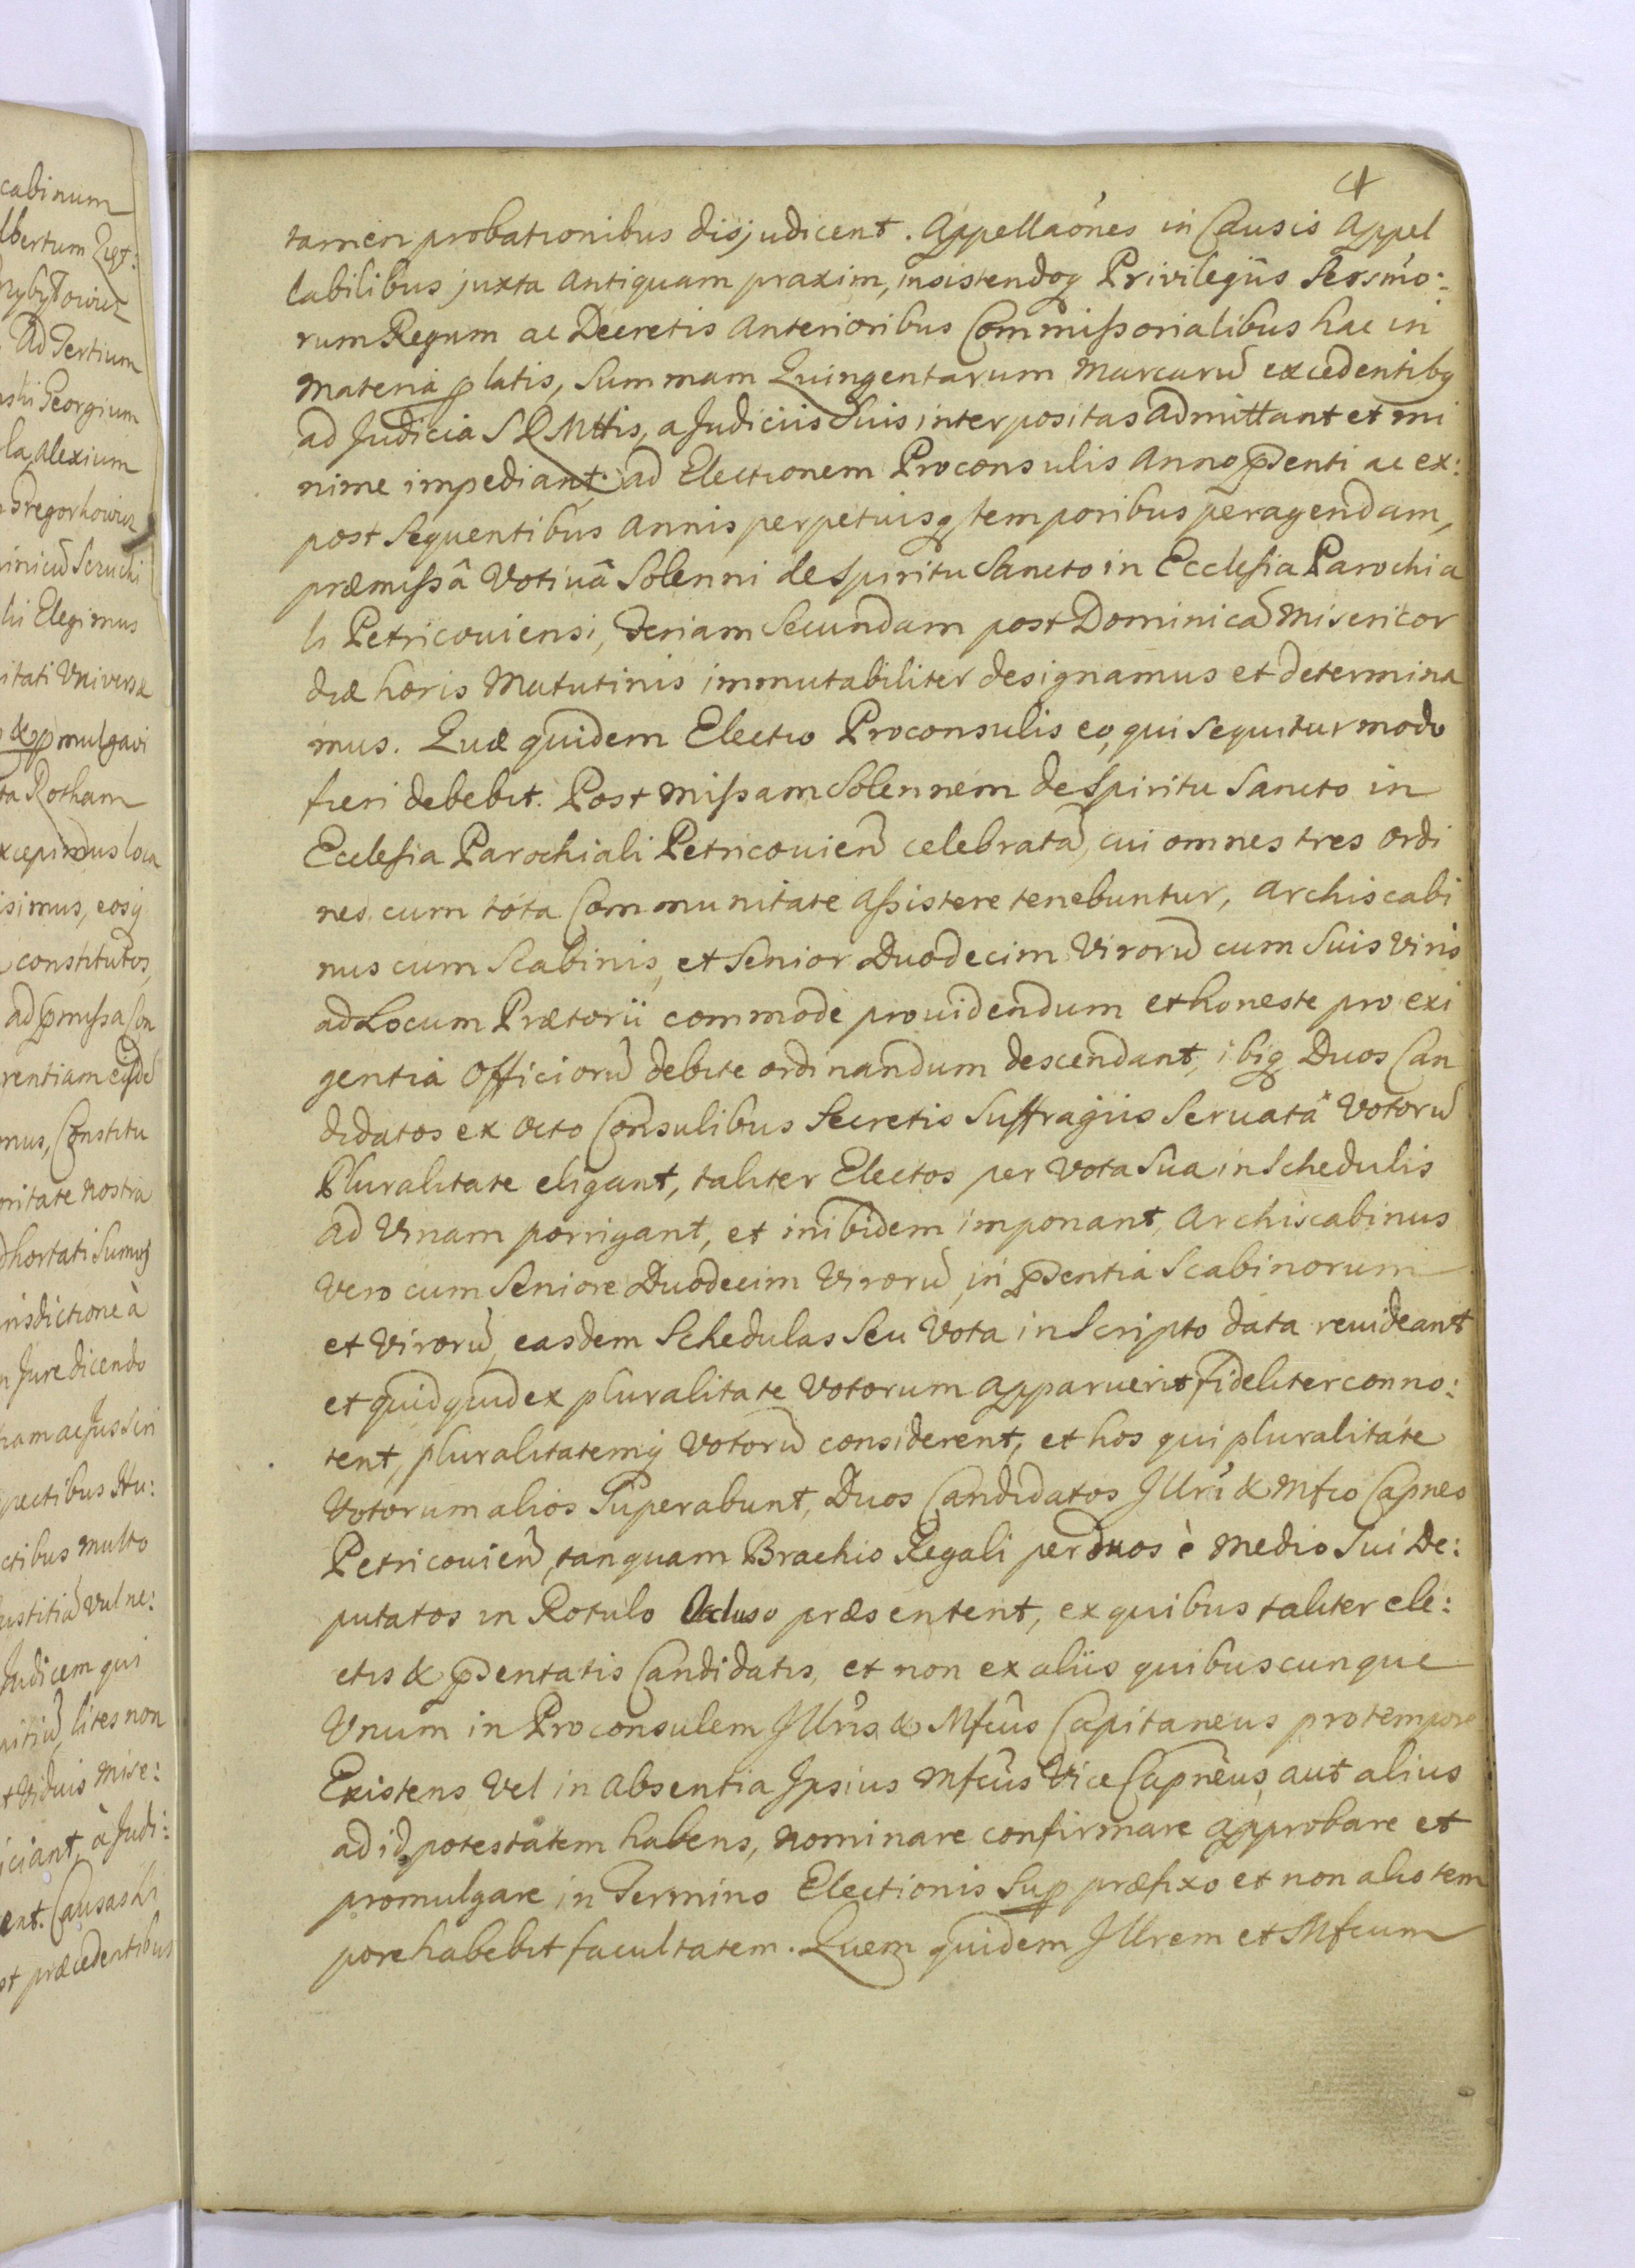 cabinum
lbertum
Ad Tertium
Georgium
la, Alexium
Gregorkowicz
hi Elegimus
itati Universæ
mulgavi
ta Rotham
xcepimus loca
isimus, eosq
constitutos,
ad pmissa Con
rentiam
mus, Constitu
oritate nostra
dhortati Sumus
risdictione à
n Jure dicendo
ham ac Jus Scri
pectibus
ctibus multo
ustitiã Vulne:
Judicem qui
lites non
t Viduis Mise:
iciant, à Judi:
ent. Causas
præcedentibus
4
tamen probationibus disjudicent. Appellaões in Causis Appel
labilibus juxta Antiquam praxim, insistendoq Privilegijs Serssmo:
rum Regum ac Decretis Anterioribus Commissorialibus hac in
Materiâ platis, Summam Quingentarum Marcarũ excedentibq
ad Judicia S R Mttis, a Judiciis Suis interpositas admittant et mi
nime impediant; ad Electionem Proconsulis Anno psenti ac ex:
post Sequentibus Annis perpetuisq temporibus peragendam,
præmissâ Votivâ Solenni de Spiritu Sancto in Ecclesia Parochia
li Petricoviensi, Feriam Secundam post Dominicã Misericor
diæ horis Matutinis immutabiliter designamus et determina
mus. Quæ quidem Electio Proconsulis eo, qui sequitur modo
fieri debebit. Post Missam Solennem de Spiritu Sancto in
Ecclesia Parochiali Petricovien celebratã, cui omnes tres Ordi
nes cum tota Communitate Assistere tenebuntur, Archiscabi
nus cum Scabinis, et Senior Duodecim Virorũ cum Suis Viris
ad Locum Prætorii commode providendum et honeste pro exi
gentia Officiorũ debite ordinandum descendant, ibiq Duos Can
didatos ex octo Consulibus Secretis Suffragijs Servatâ Votorũ
Pluralitate eligant, taliter Electos per Vota Sua in Schedulis
ad Vrnam porrigant, et inibidem imponant, Archiscabinus
Vero cum Seniore Duodecim Virorũ, in psentia Scabinorum
et Virorũ, easdem Schedulas Seu Vota in Scripto data revideant
et quidquid ex pluralitate Votorum apparuerit fideliter conno:
tent, pluralitatemq Votorũ considerent, et hos qui pluralitate
Votorum alios Superabunt, Duos Candidatos Jllri & Mfco Capneo
Petricovien, tanquam Brachio Regali per duos è medio Sui De:
putatos in Rotulo Ocluso præsentent, ex quibus taliter ele:
ctis & psentatis Candidatis, et non ex aliis quibuscunque
Vnum in Proconsulem Jllris & Mfcus Capitaneus pro tempore
Existens Vel in absentia Ipsius Mfcus Vice Capneus, aut alius
ad id potestatem habens, nominare confirmare approbare et
promulgare in Termino Electionis Sup præfixo et non alio tem
pore habebit facultatem. Quem quidem Jllrem et Mfcum